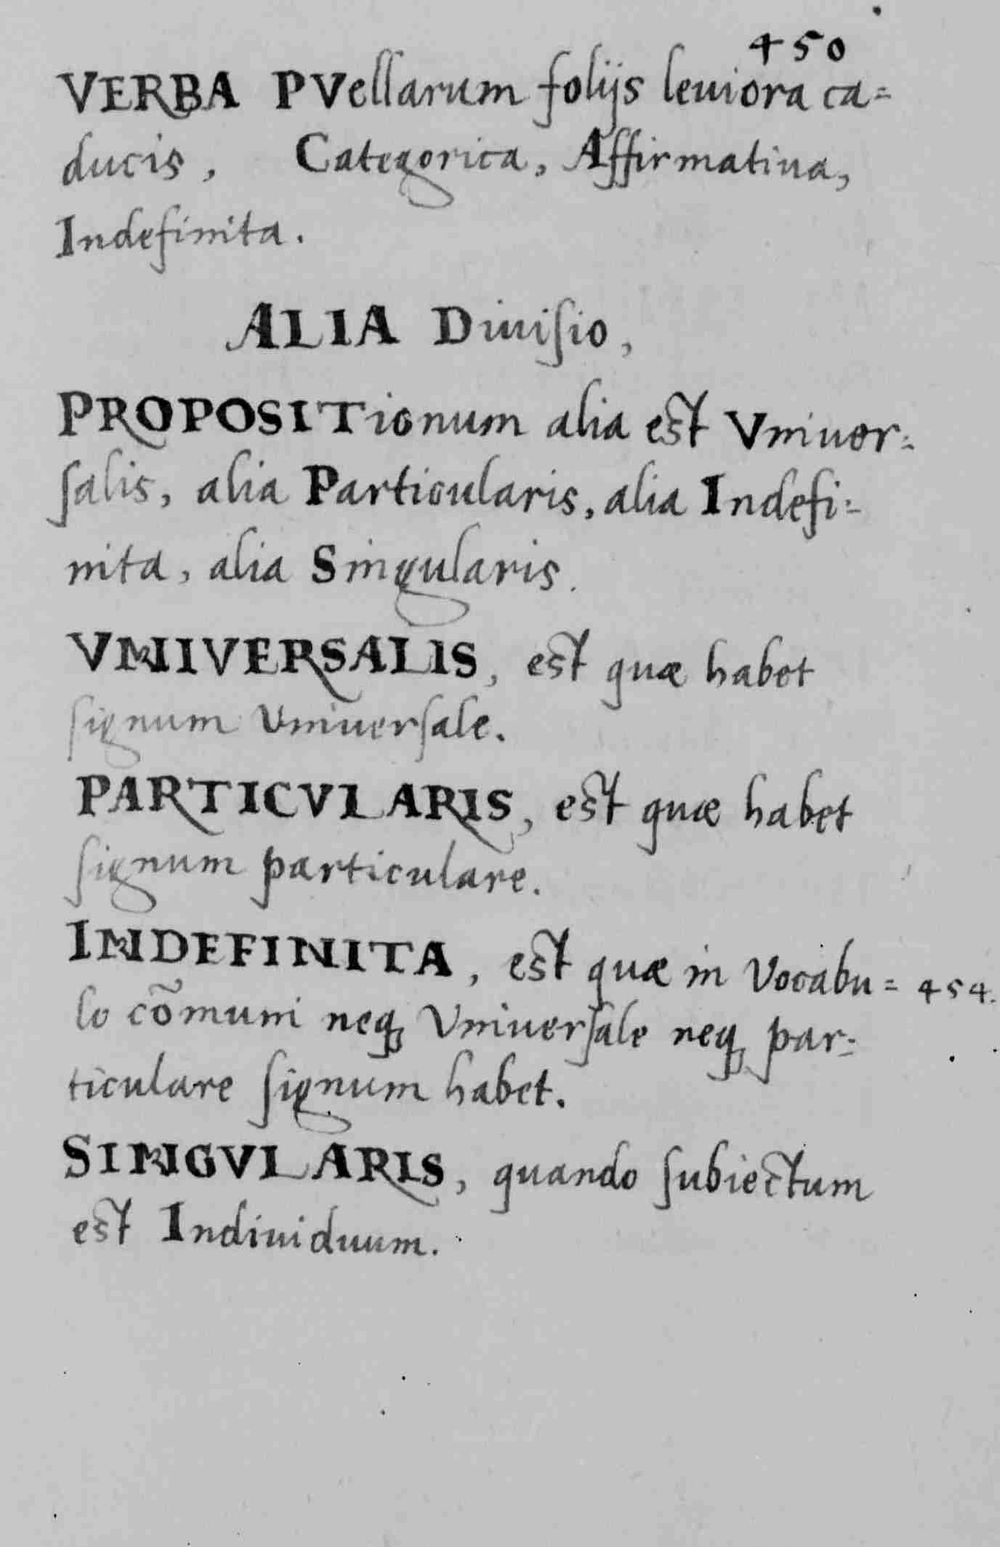 450
VERBA PVellarum folijs leuiora ca=
ducis, Categorica, Affirmatiua,
Indefinita.
ALIA Diuiſio,
PROPOSITionum alia est Vniuer=
ſalis, alia Particularis, alia Indefi=
nita, alia Singularis.
VNIVERSALIS, est quæ habet
ſignum Vniuerſale.
PARTICVLARIS, est quæ habet
ſignum particulare.
INDEFINITA, est quæ in Vocabu= 454.
lo cõmuni neqꝫ Vniuerſale neqꝫ par=
ticulare ſignum habet.
SINGVLARIS, quando ſubiectum
est Indiuiduum.